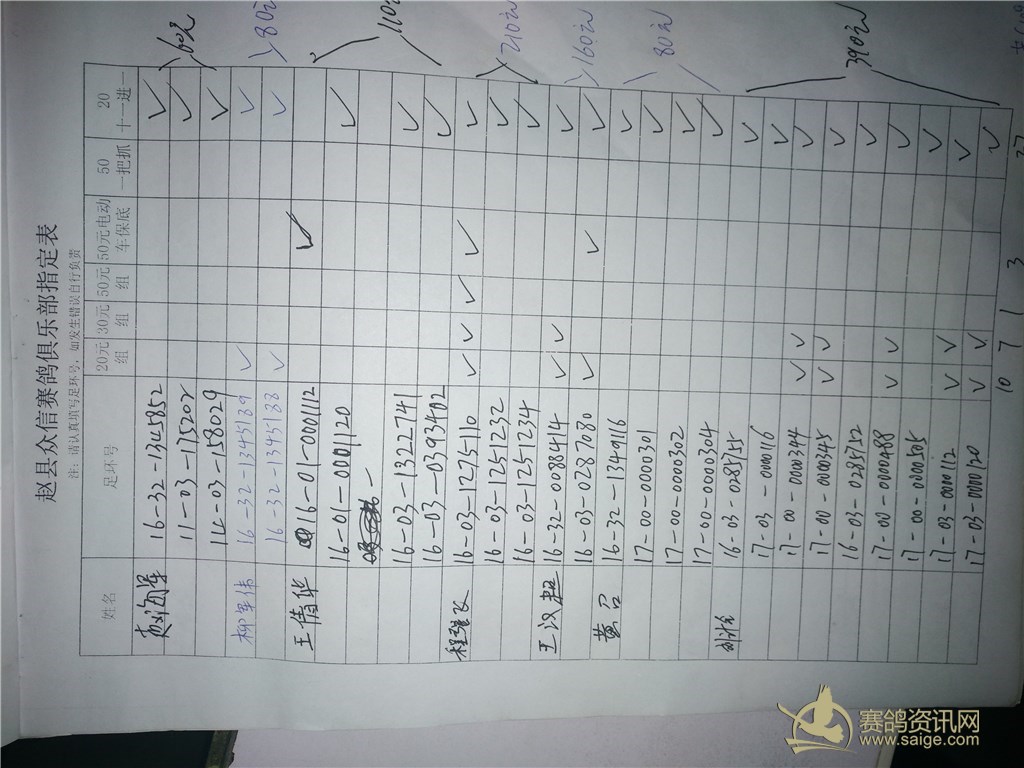 赵县众信赛鸽俱乐部指定表
注：请认真填写足环号，如发生错误自行负责
姓名 足环号 20元组 30元组 50元组 50元电动车保底 50一把抓 20十一进一
16-32-1345852 ✓
11-03-175202 ✓
14-03-158029 ✓
柳军伟 16-32-1345189 ✓ ✓
16-32-1345188 ✓ ✓
王倩华 16-01-0001112 ✓
16-01-0001120 ✓
16-03-1322741 ✓
16-03-0393402 ✓
16-03-1275110 ✓ ✓ ✓ ✓ ✓
16-03-1251232 ✓
16-03-1251234 ✓
王汉超 16-32-0088414 ✓ ✓ ✓
16-03-0287080 ✓ ✓ ✓
黄召 16-32-1349116 ✓
17-00-0000301 ✓
17-00-0000302 ✓
17-00-0000304 ✓
16-03-0285155 ✓
17-03-0000116 ✓
17-00-0000344 ✓ ✓ ✓
17-00-0000345 ✓ ✓ ✓
16-03-0285152 ✓
17-00-0000488 ✓ ✓ ✓
17-00-0000505 ✓
17-03-0000112 ✓ ✓ ✓
17-03-0000120 ✓ ✓ ✓
10 7 1 3 27
60元
80元
110元
210元
160元
80元
390元
赛鸽资讯网
www.saige.com